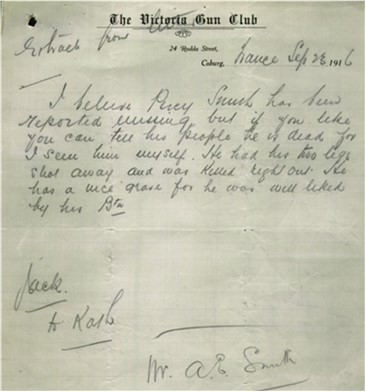 The Victoria Gun Club
24 Rodda Street,
Coburg,
Extract from
France Sep 28 1916
I believe Percy Smith has been
reported missing but if you like
you can tell his people he is dead for
I seen him myself. He had his two legs
shot away and was killed right out. He
has a nice grave for he was well liked
by his Btn
Jack.
to Kath
Mr. A.E. Smith